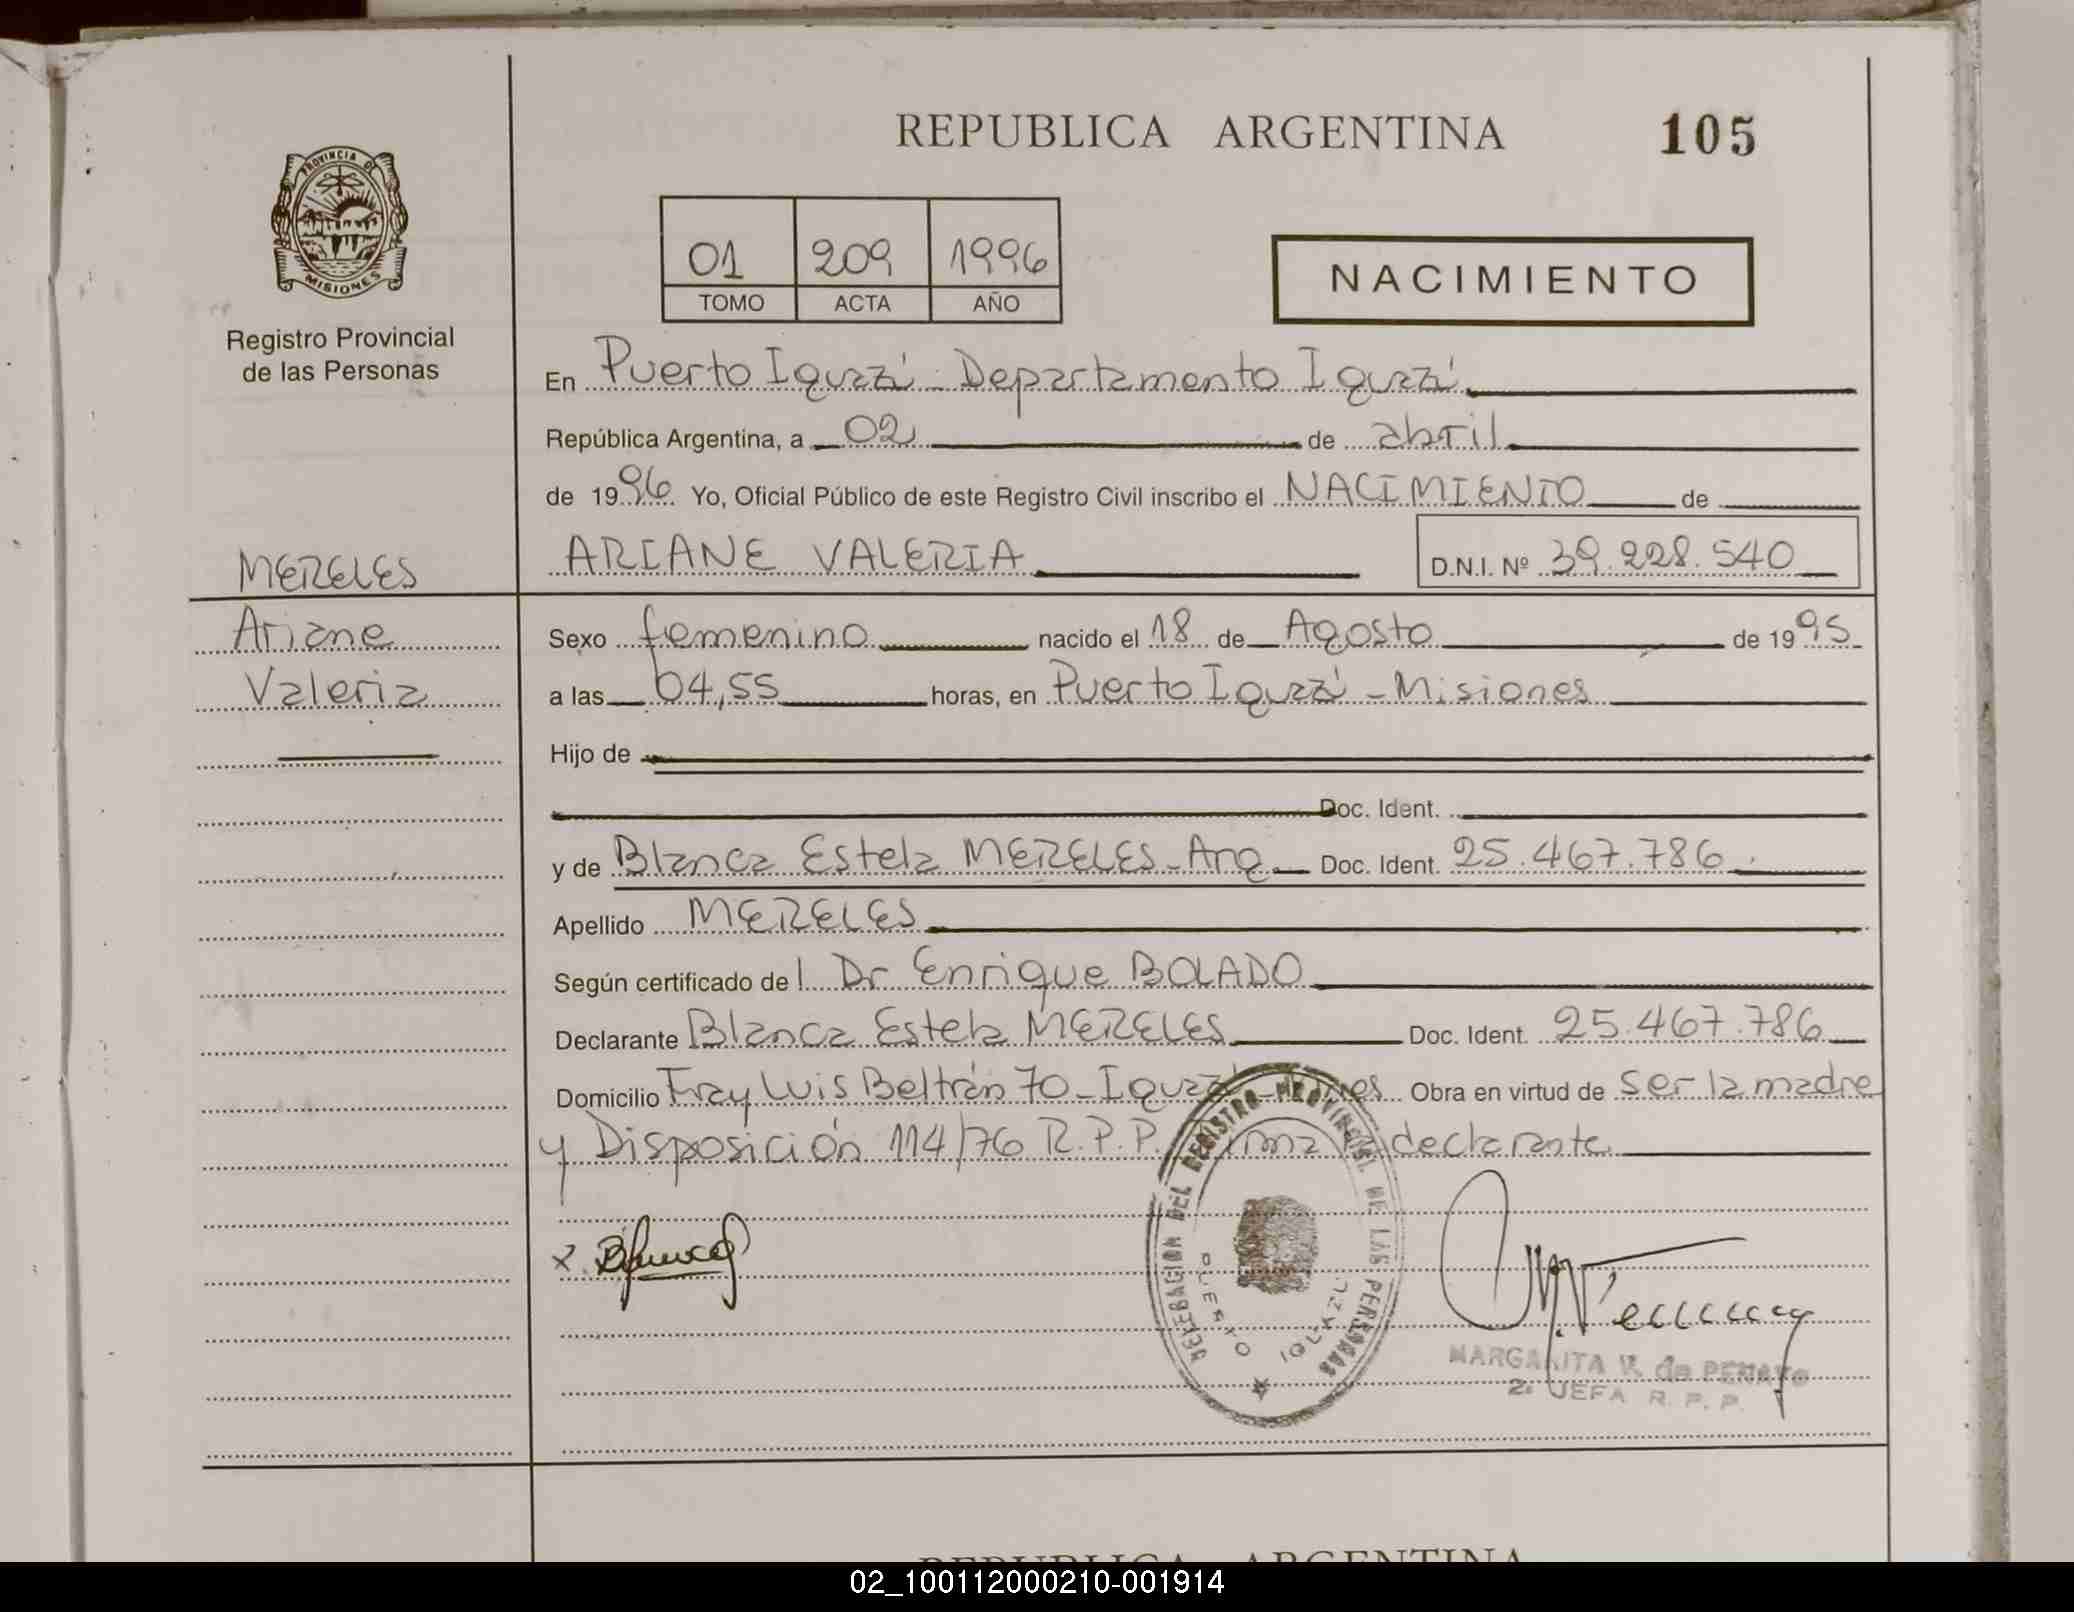 REPUBLICA ARGENTINA 105
PROVINCIA DE
MISIONES
Registro Provincial
de las Personas
01 209 1996
TOMO ACTA AÑO
NACIMIENTO
En Puerto Iguazú - Departamento Iguazú
República Argentina, a 02 de abril
de 1996 Yo, Oficial Público de este Registro Civil inscribo el NACIMIENTO de
ARIANE VALERIA D.N.I. Nº 39.228.540
MERELES
Ariane
Valeria
Sexo femenino nacido el 18 de Agosto de 1995
a las 04,55 horas, en Puerto Iguazú - Misiones
Hijo de
Doc. Ident.
y de Blanca Estela MERELES - Arg Doc. Ident. 25.467.786
Apellido MERELES
Según certificado de l Dr Enrique BOLADO
Declarante Blanca Estela MERELES Doc. Ident. 25.467.786
Domicilio Fray Luis Beltrán 70 - Obra en virtud de ser la madre
y Disposición 114/76 R.P.P. declarante
DELEGACION DEL REGISTRO PROVINCIAL DE LAS PERSONAS
PUERTO IGUAZU
MARGARITA V. de
2ª JEFA R. P. P.
REPUBLICA ARGENTINA
02_100112000210-001914